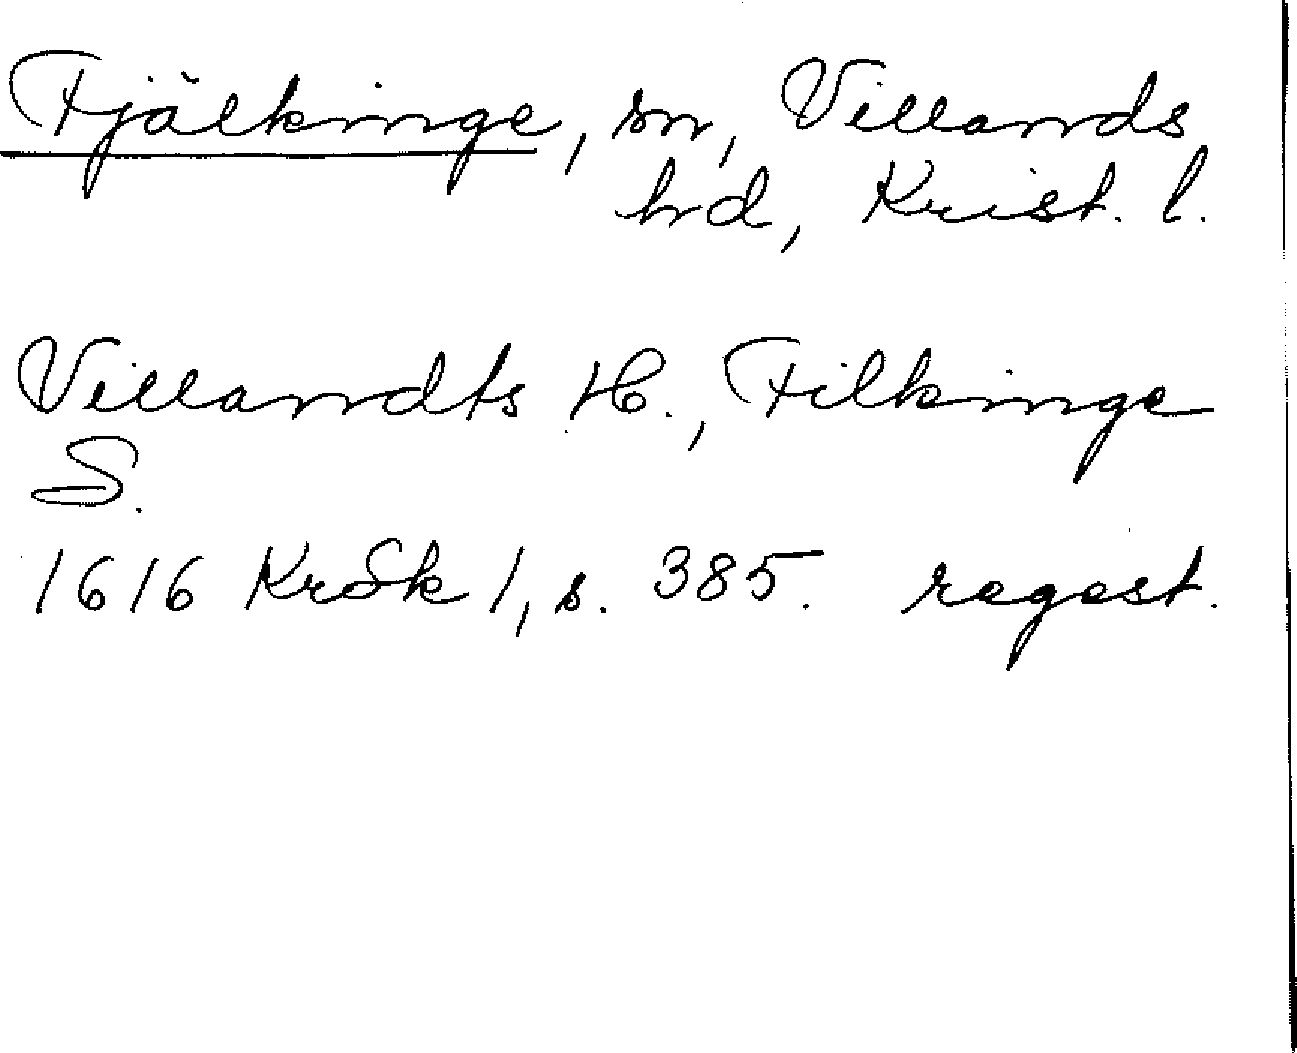 Fjälkinge, sn, Villands
hd, Krist. l.
Villandts H., Filkinge
S.
1616 KrSk 1, s. 385. regest.